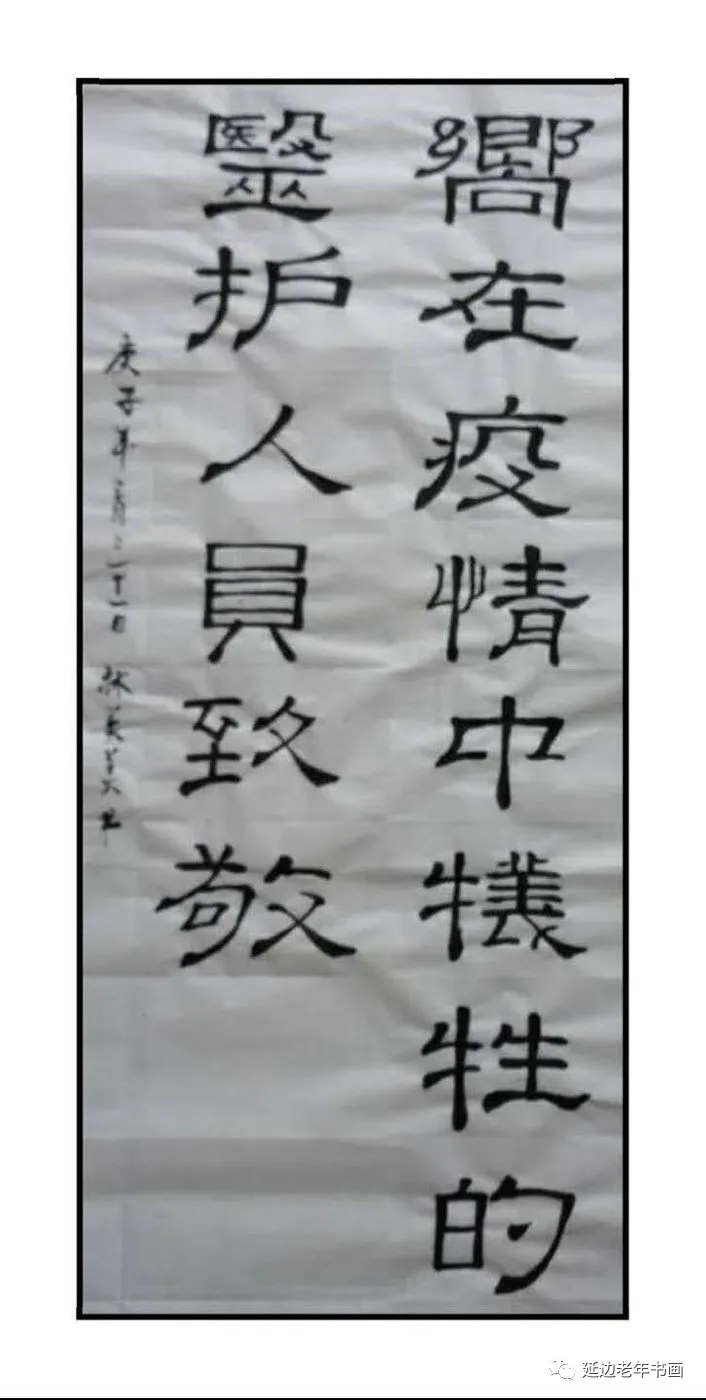 嚮在疫情中犠牲的
毉护人員致敬
庚子年二月二十一日
延边老年书画